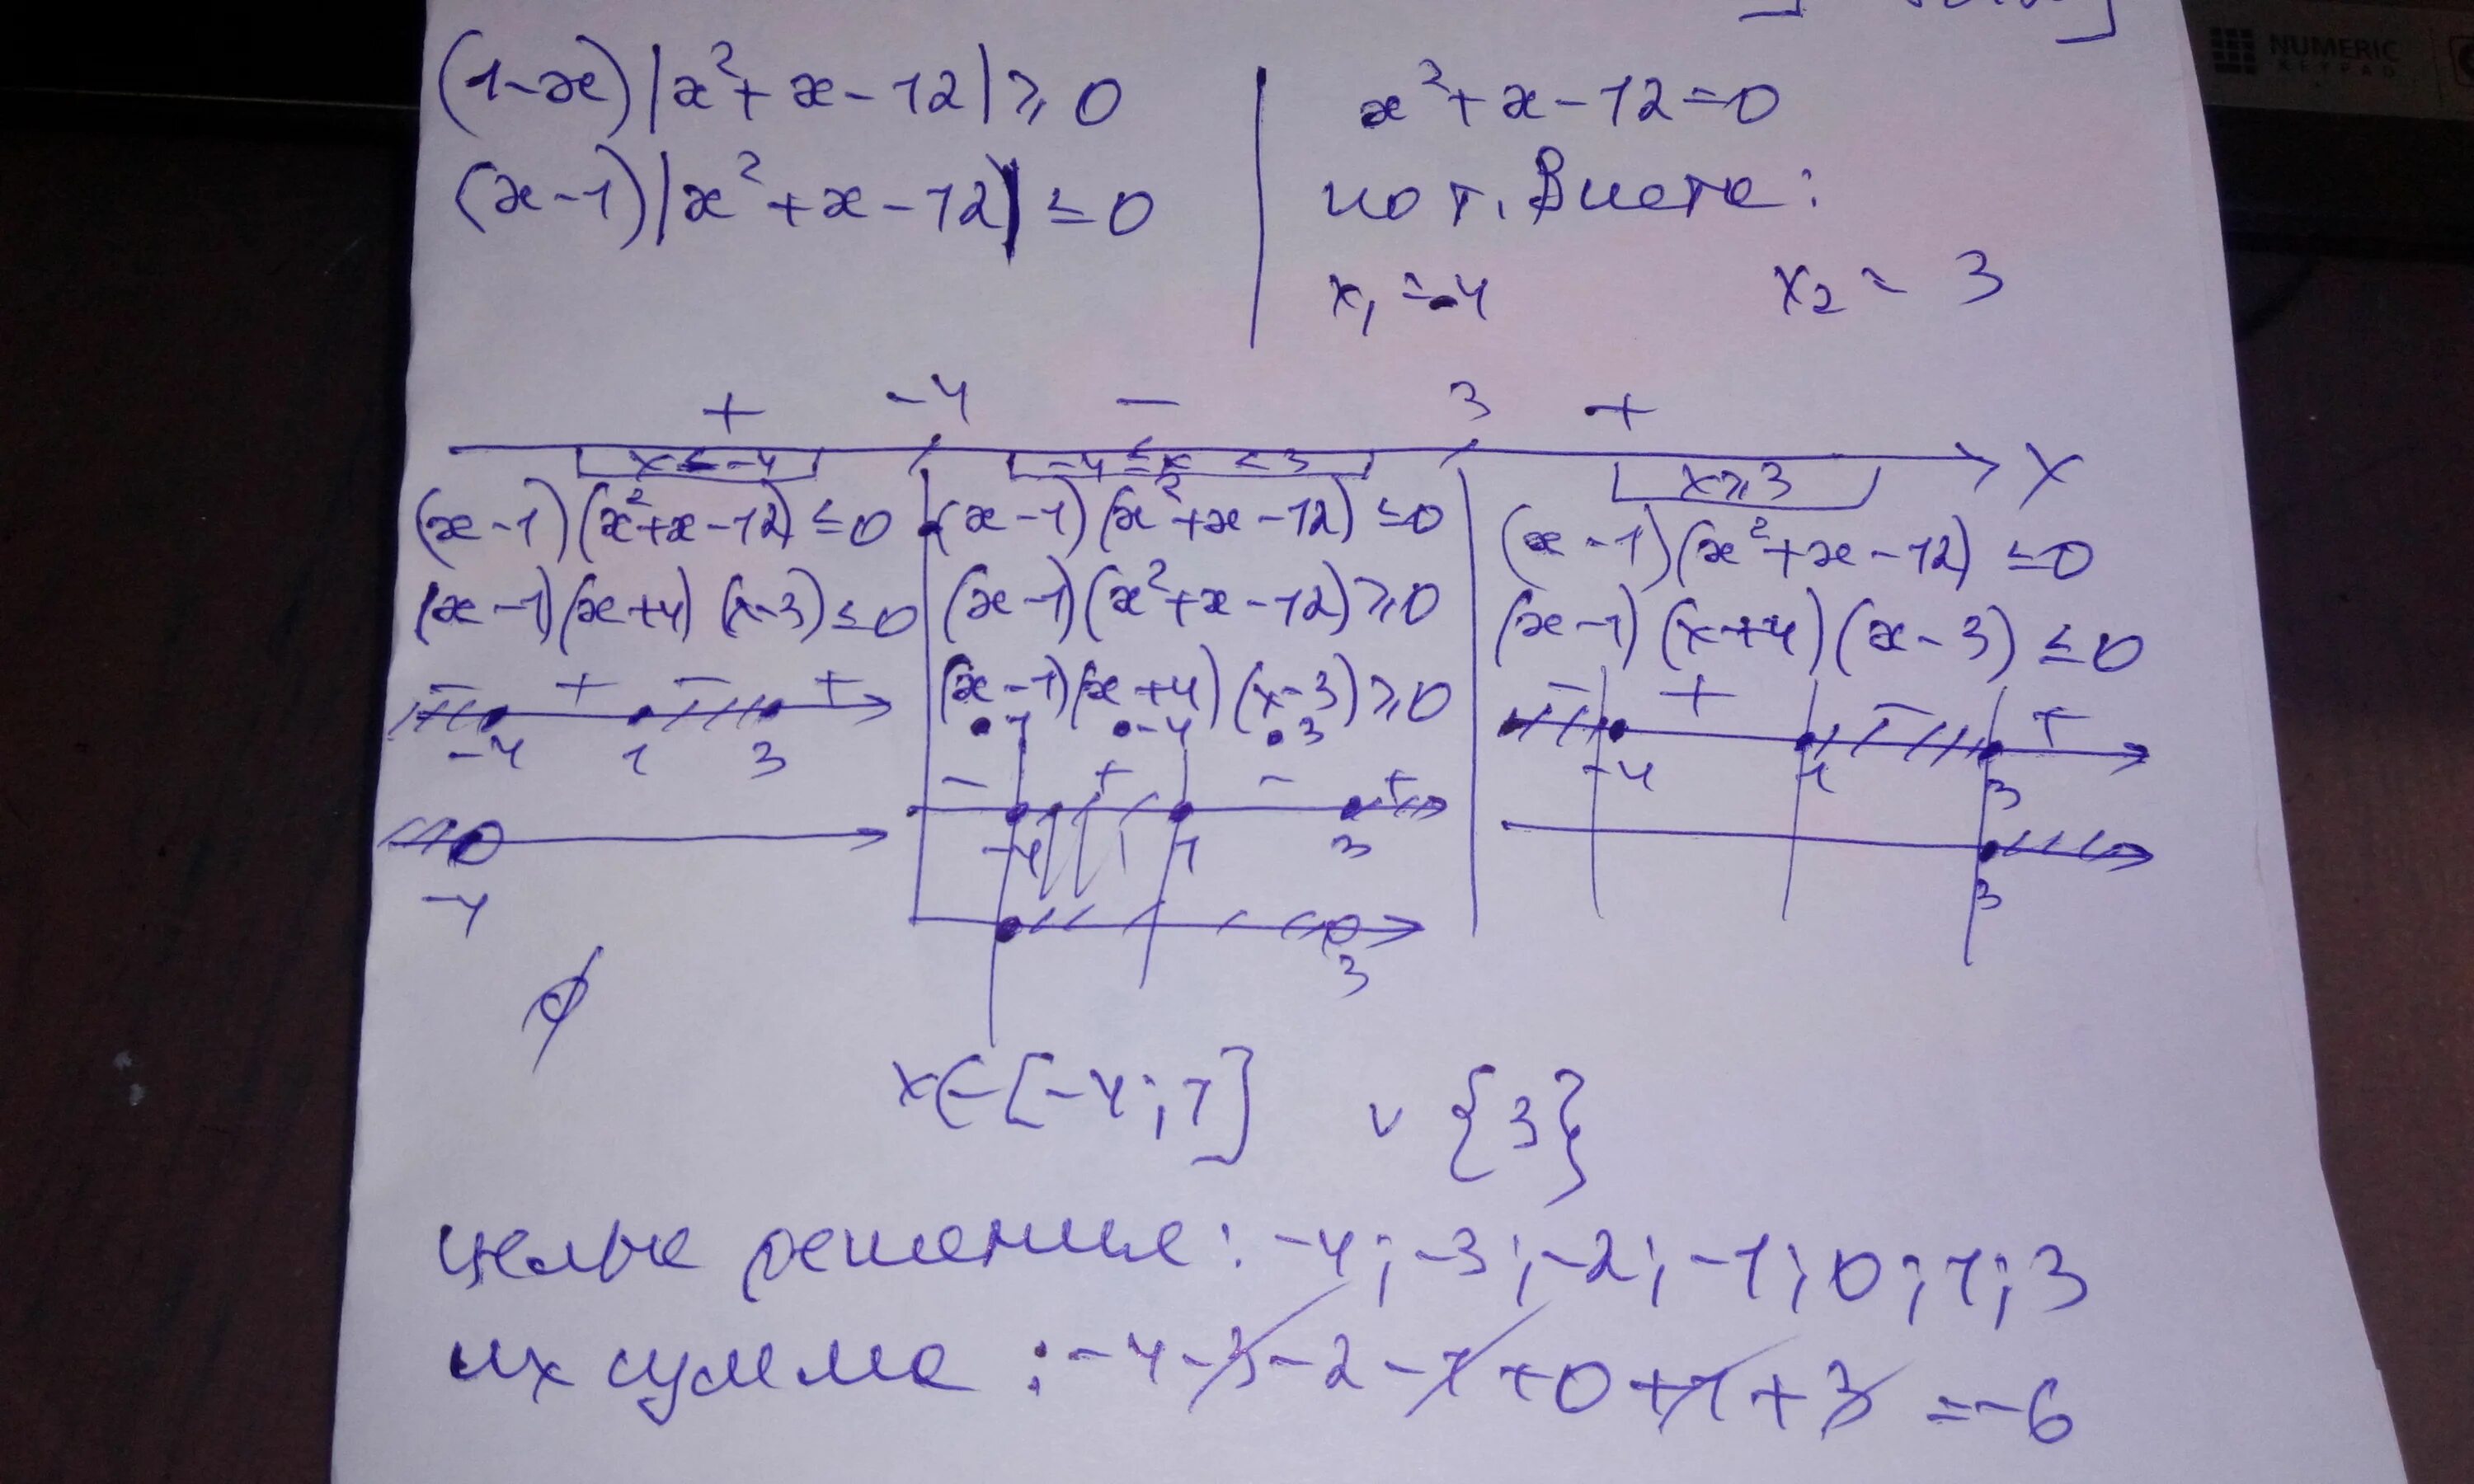 NUMERIC
KEYPAD
(1-x)|x²+x-12|≥0
(x-1)|x²+x-12|≤0
x²+x-12=0
по т. Виета:
x₁=-4 x₂=3
+ -4 - 3 +
x<-4 -4≤x<3 x≥3 X
(x-1)(x²+x-12)≤0
(x-1)(x+4)(x-3)≤0
- + - +
-4 1 3
-4
∅
(x-1)(x²+x-12)≤0
(x-1)(x²+x-12)≥0
(x-1)(x+4)(x-3)≥0
•1 •-4 •3
- + - +
-4 1 3
3
(x-1)(x²+x-12)≤0
(x-1)(x+4)(x-3)≤0
- + - +
-4 1 3
3
x∈[-4;1] ∪ {3}
целые решения: -4;-3;-2;-1;0;1;3
их сумма: -4-3-2-1+0+1+3=-6